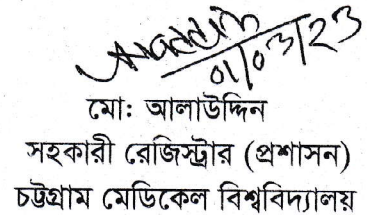 01/03/23
মো: আলাউদ্দিন
সহকারী রেজিস্ট্রার (প্রশাসন)
চট্টগ্রাম মেডিকেল বিশ্ববিদ্যালয়